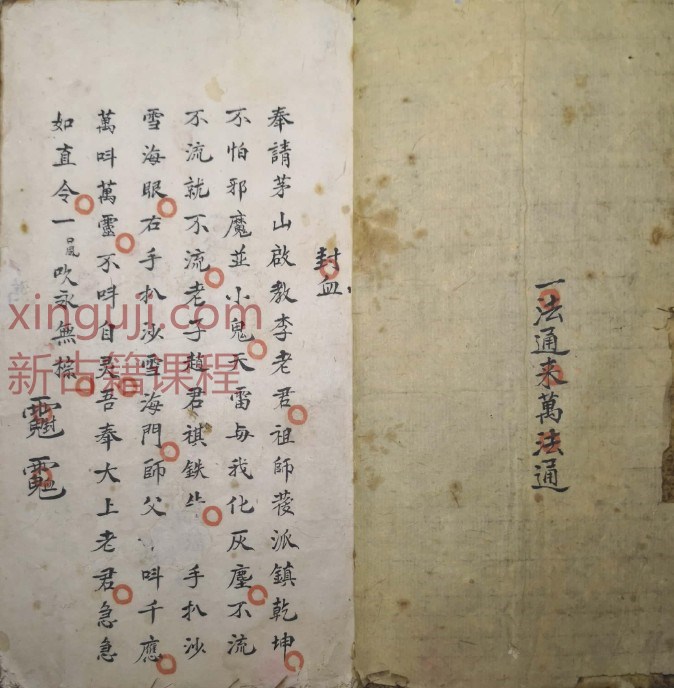 一法通來萬法通
封血
奉請茅山啟教李老君祖師蔆派鎮乾坤
不怕邪魔並小鬼天雷与我化灰塵不流
不流就不流老子趙君祺鉄牛手扒沙
雪海眼右手扒沙雪海門師父呌千應
萬呌萬靈不呌自灵吾奉大上老君急急
如直令一口風吹永無
xinguji.com
新古籍课程